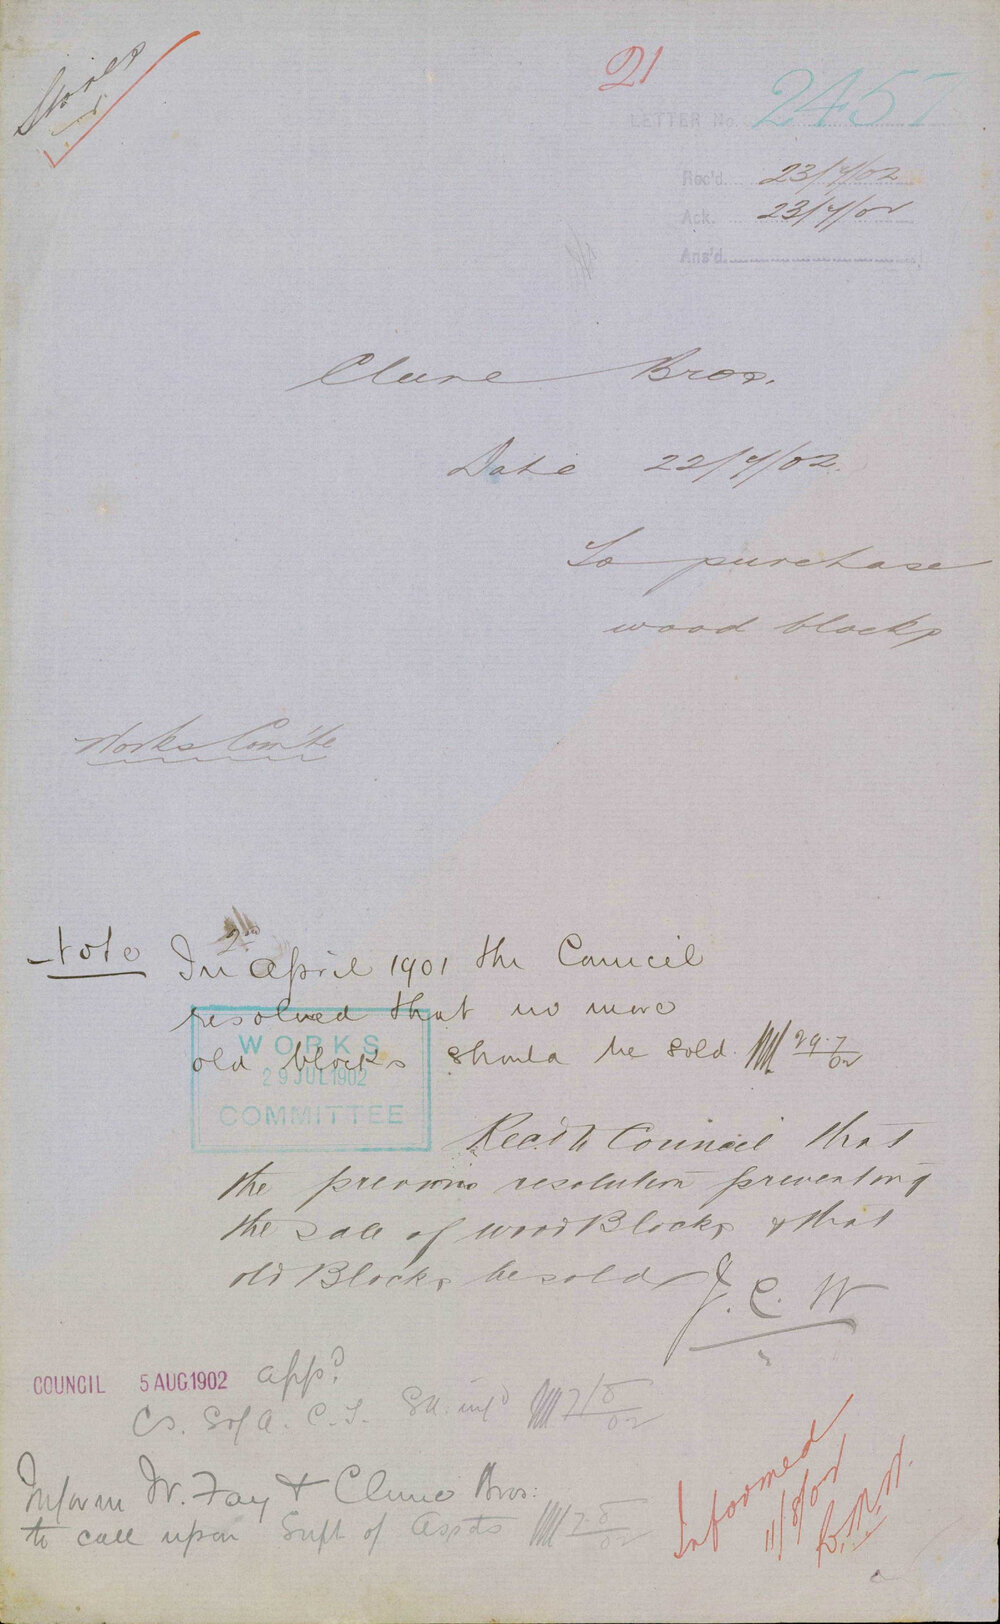 Stores
21
LETTER No. 2457
Rec'd. 23/7/02
Ack. 23/7/02
Ans'd.
Clune Bros.
Date 22/7/02.
To purchase
wood blocks
Works Com'te
Note In 2nd April 1901 the Council
resolved that no more
old blocks should be sold. 29.7/02
WORKS
29 JUL 1902
COMMITTEE
Rec. to Council that
the previous resolution preventing
the sale of wood Blocks & that
old Blocks be sold J. C. W
COUNCIL 5 AUG 1902 app?
Cs. Sof A. C. S. 7/8/02
Inform W. Fay & Clune Bros:
to call upon Supt of Assets 7.8/02
Informed
11/8/02